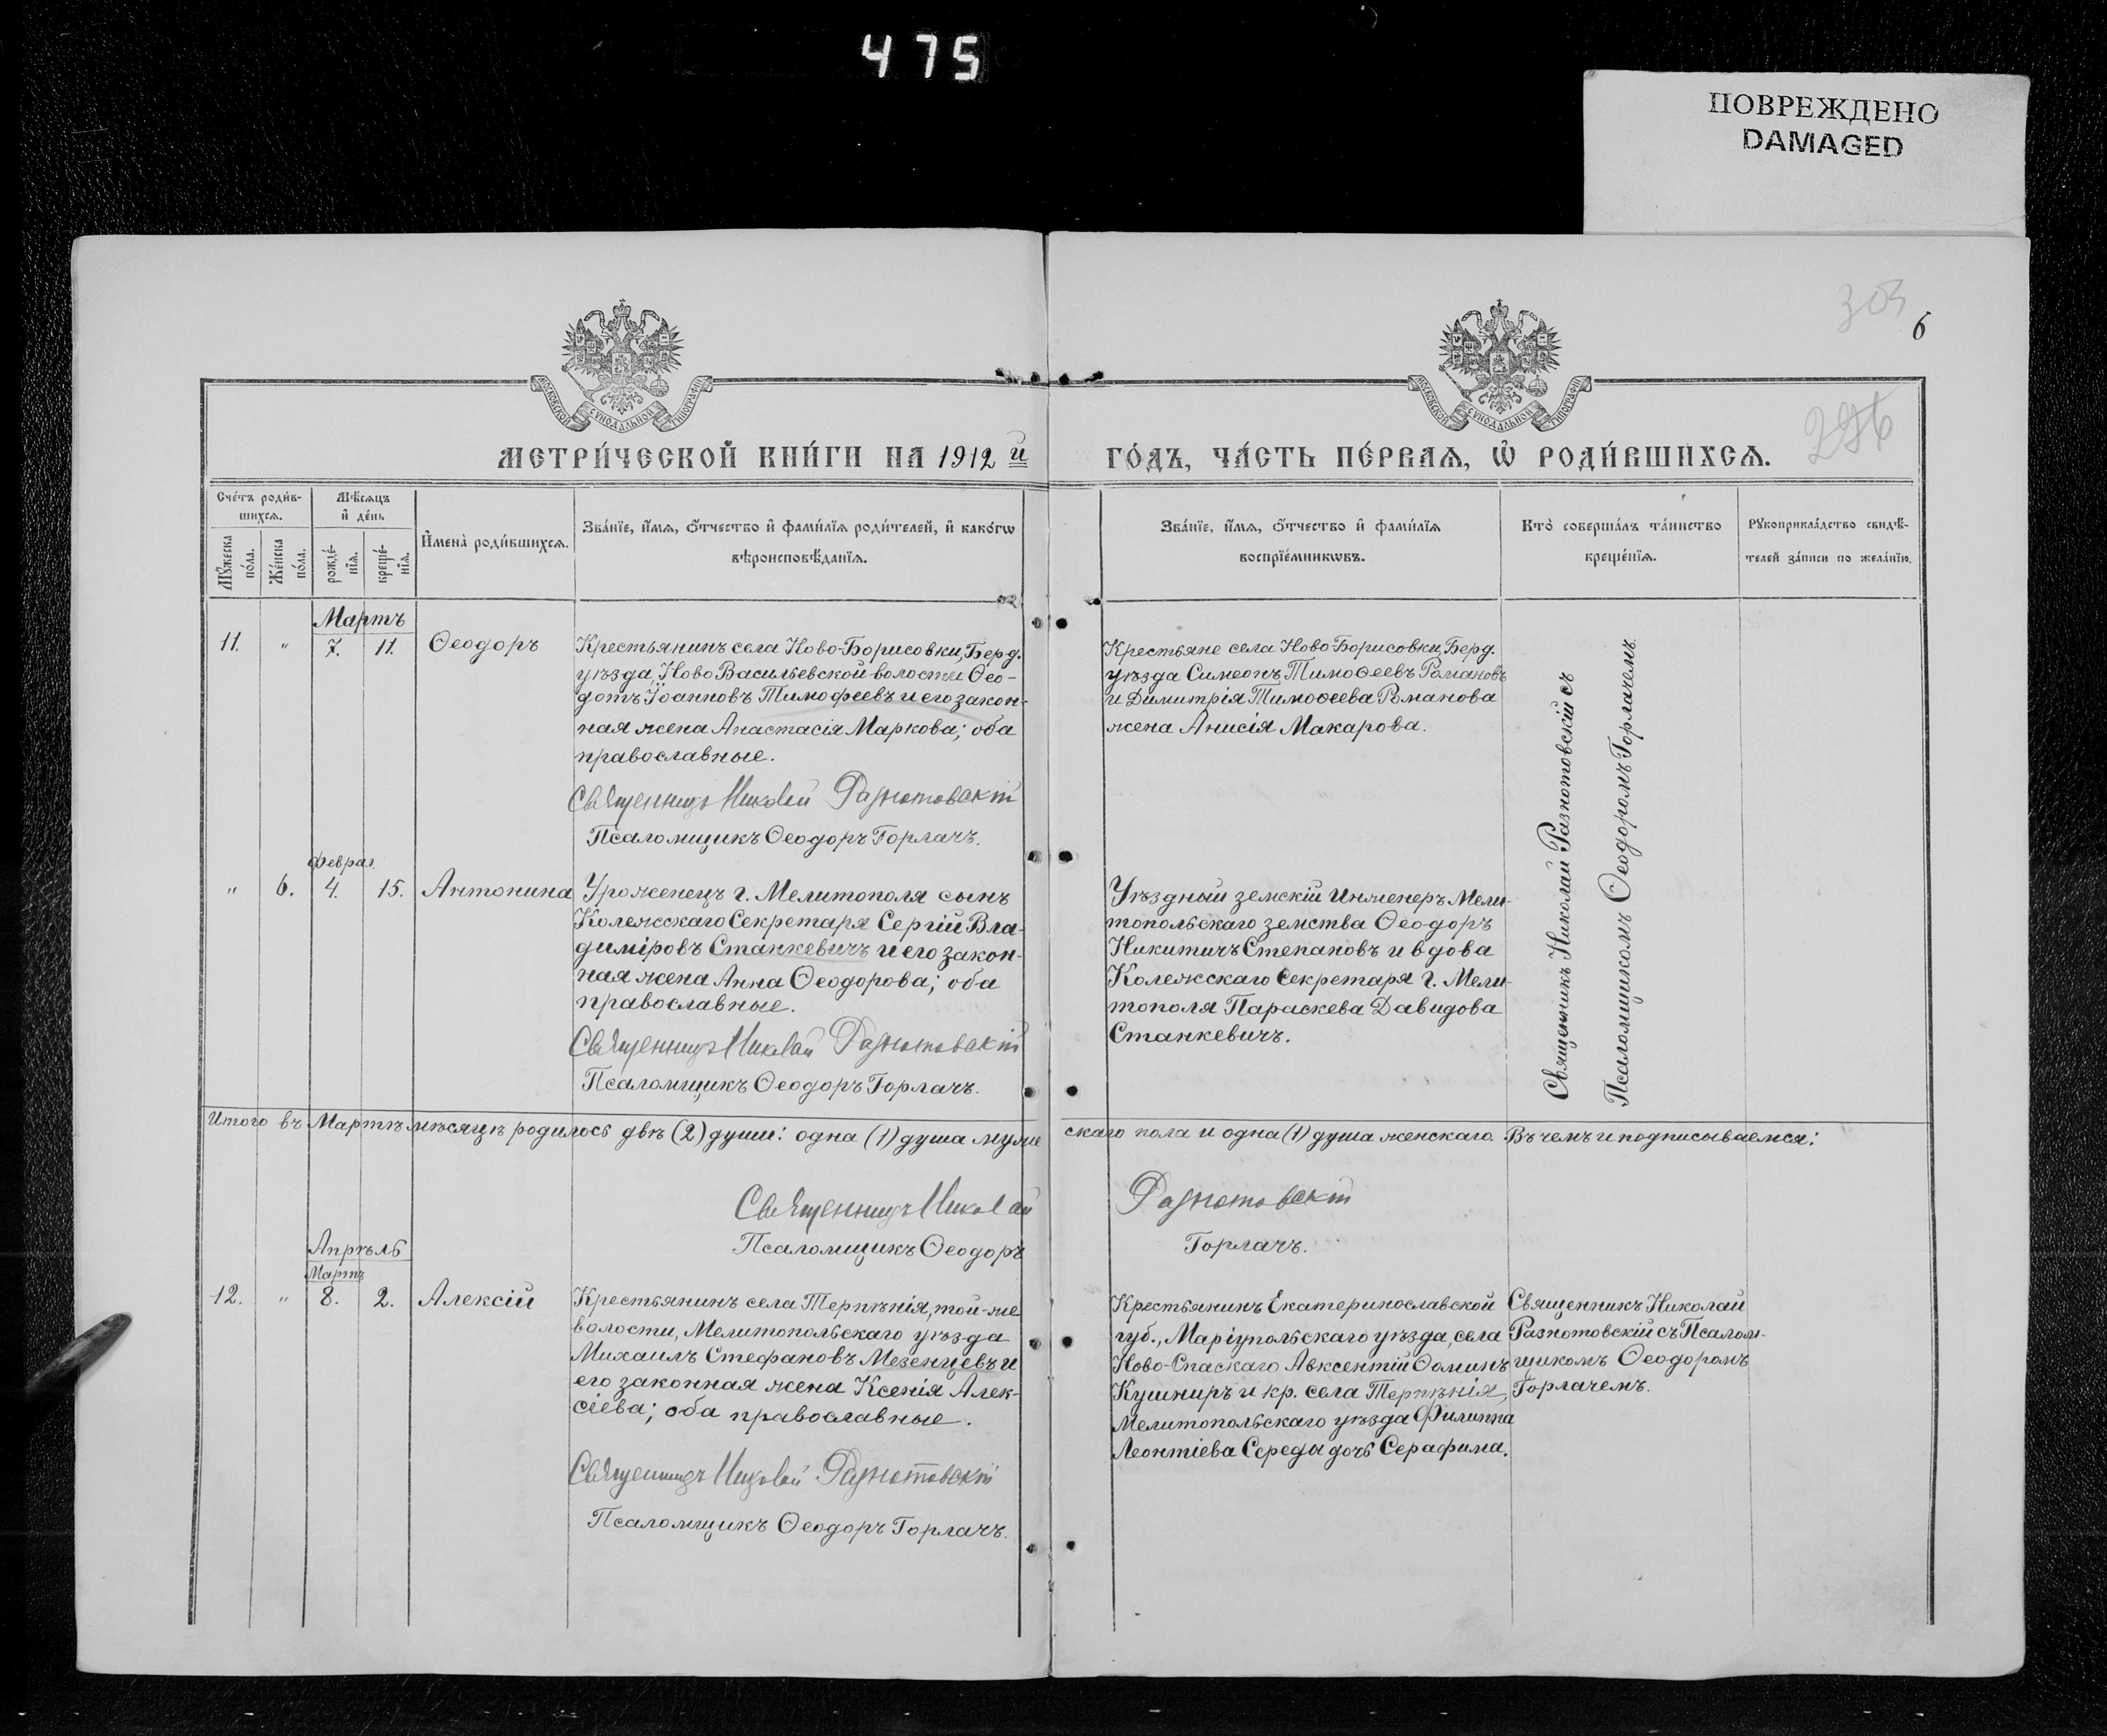 475
ПОВРЕЖДЕНО
DAMAGED
303
6
296
МОСКОВСКОЙ СѴНОДАЛЬНОЙ ТИПОГРАФІИ
МОСКОВСКОЙ СѴНОДАЛЬНОЙ ТИПОГРАФІИ
МЕТРИ́ЧЕСКОЙ КНИ́ГИ НА 1912 й
ГО́ДЪ, ЧА́СТЬ ПЕ́РВАѦ, Ѡ҆ РОДИ́ВШИХСѦ.
Сче́тъ роди́в-
шихсѧ.
Мꙋ́жеска
по́ла.
Же́нска
по́ла.
Мѣ́сѧцъ
и҆ де́нь
рожде́-
нїѧ.
креще́-
нїѧ.
И҆мена̀ роди́вшихсѧ.
Зва́нїе, и҆́мѧ, ѻ҆́тчество и҆ фами́лїѧ роди́телей, и҆ како́гѡ
вѣроисповѣ́данїѧ.
Зва́нїе, и҆́мѧ, ѻ҆́тчество и҆ фами́лїѧ
воспрїе́мникѡвъ.
Кто̀ соверша́лъ та́инство
креще́нїѧ.
Рꙋкоприкла́дство свидѣ́-
телей за́писи по жела́нїю.
Мартъ
11. " 7. 11. Ѳеодоръ
Крестьянинъ села Ново-Борисовки, Берд.
уѣзда, Ново Васильевской волости Ѳео-
дотъ Іоанновъ Тимофеевъ и его закон-
ная жена Анастасія Маркова; оба
православные.
Священникъ Николай Разнотовскій
Псаломщикъ Ѳеодоръ Горлачъ.
Крестьяне села Ново-Борисовки, Берд.
уѣзда Симеонъ Тимоѳеевъ Романовъ
и Димитрія Тимоѳеева Романова
жена Анисія Макарова.
Священникъ Николай Разнотовскій съ
Псаломщикомъ Ѳеодоромъ Горлачемъ.
Феврал.
" 6. 4. 15. Антонина
Уроженецъ г. Мелитополя сынъ
Колежскаго Секретаря Сергій Вла-
диміровъ Станкевичъ и его закон-
ная жена Анна Ѳеодорова; оба
православные.
Священникъ Николай Разнотовскій
Псаломщикъ Ѳеодоръ Горлачъ.
Уѣздный земскій Инженеръ Мели-
топольскаго земства Ѳеодоръ
Никитичъ Степановъ и вдова
Колежскаго Секретаря г. Мели-
тополя Параскева Давидова
Станкевичъ.
Итого въ Мартѣ мѣсяцѣ родилось двѣ (2) души: одна (1) душа муже
скаго пола и одна (1) душа женскаго. Въ чемъ и подписываемся:
Священникъ Николай Разнотовскій
Псаломщикъ Ѳеодоръ Горлачъ.
Апрѣль
Мартъ
12. " 8. 2. Алексій
Крестьянинъ села Терпѣнія, той-же
волости, Мелитопольскаго уѣзда
Михаилъ Стефановъ Мезенцевъ и
его законная жена Ксенія Алек-
сіева; оба православные.
Священникъ Николай Разнотовскій
Псаломщикъ Ѳеодоръ Горлачъ.
Крестьянинъ Екатеринославской
губ., Маріупольскаго уѣзда, села
Ново-Спаскаго Авксентій Ѳоминъ
Кушниръ и кр. села Терпѣнія,
Мелитопольскаго уѣзда Филиппа
Леонтіева Середы дочь Серафима.
Священникъ Николай
Разнотовскій съ Псалом-
щикомъ Ѳеодоромъ
Горлачемъ.